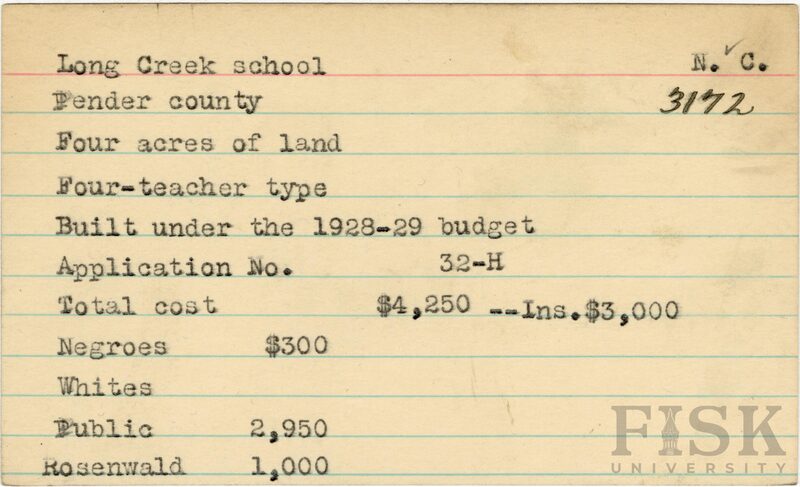 Long Creek school N. C.
Pender county 3172
Four acres of land
Four-teacher type
Built under the 1928-29 budget
Application No. 32-H
Total cost $4,250 --Ins.$3,000
Negroes $300
Whites
Public 2,950
Rosenwald 1,000
FISK
UNIVERSITY